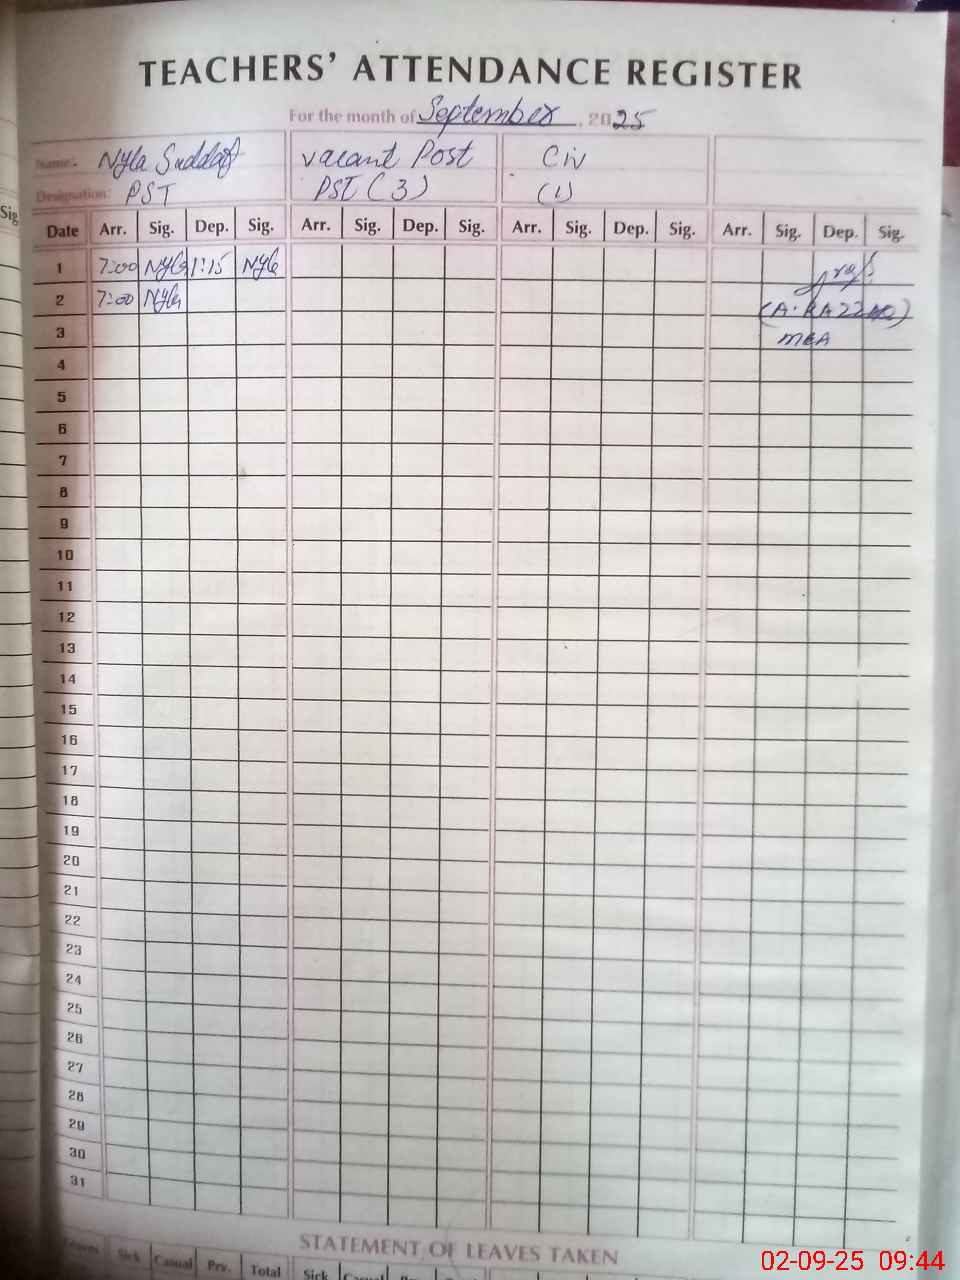 TEACHERS' ATTENDANCE REGISTER
For the month of September, 2025
Name: Nyla Suddaf vacant Post Civ
Designation: PST PST (3) (1)
Sig
Date Arr. Sig. Dep. Sig. Arr. Sig. Dep. Sig. Arr. Sig. Dep. Sig. Arr. Sig. Dep. Sig.
1 7:00 Nyla 1:15 Nyla
2 7:00 Nyla (A. RAZZAQ)
3 MEA
4
5
6
7
8
9
10
11
12
13
14
15
16
17
18
19
20
21
22
23
24
25
26
27
28
29
30
31
STATEMENT OF LEAVES TAKEN
Leaves Sick Casual Prv. Total Sick Casual
02-09-25 09:44